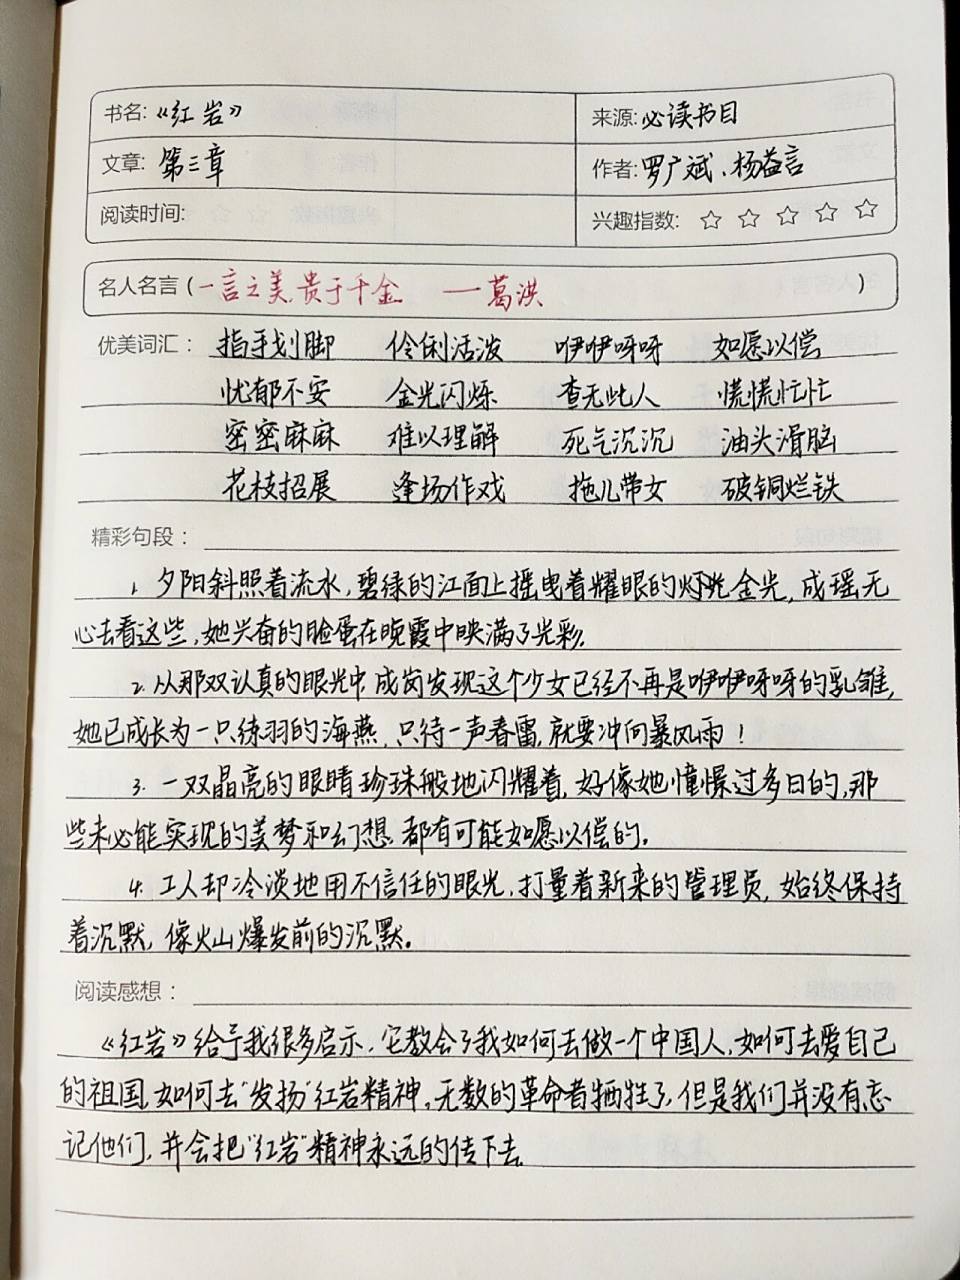 书名:《红岩》 来源:必读书目
文章:第三章 作者:罗广斌、杨益言
阅读时间: 兴趣指数:☆☆☆☆☆
名人名言(一言之美,贵于千金 ——葛洪)
优美词汇: 指手划脚 伶俐活泼 咿咿呀呀 如愿以偿
忧郁不安 金光闪烁 查无此人 慌慌忙忙
密密麻麻 难以理解 死气沉沉 油头滑脑
花枝招展 逢场作戏 拖儿带女 破铜烂铁
精彩句段:
1. 夕阳斜照着流水,碧绿的江面上摇曳着耀眼的金光,成瑶无
心去看这些,她兴奋的脸蛋在晚霞中映满了光彩.
2. 从那双认真的眼光中,成岗发现这个少女已经不再是咿咿呀呀的乳雏,
她已成长为一只练羽的海燕,只待一声春雷,就要冲向暴风雨!
3. 一双晶亮的眼睛珍珠般地闪耀着,好像她憧憬过多日的,那
些未必能实现的美梦和幻想,都有可能如愿以偿的。
4. 工人却冷淡地用不信任的眼光,打量着新来的管理员,始终保持
着沉默,像火山爆发前的沉默。
阅读感想:
《红岩》给予我很多启示,它教会了我如何去做一个中国人,如何去爱自己
的祖国,如何去"发扬"红岩精神,无数的革命者牺牲了,但是我们并没有忘
记他们,并会把"红岩"精神永远的传下去.